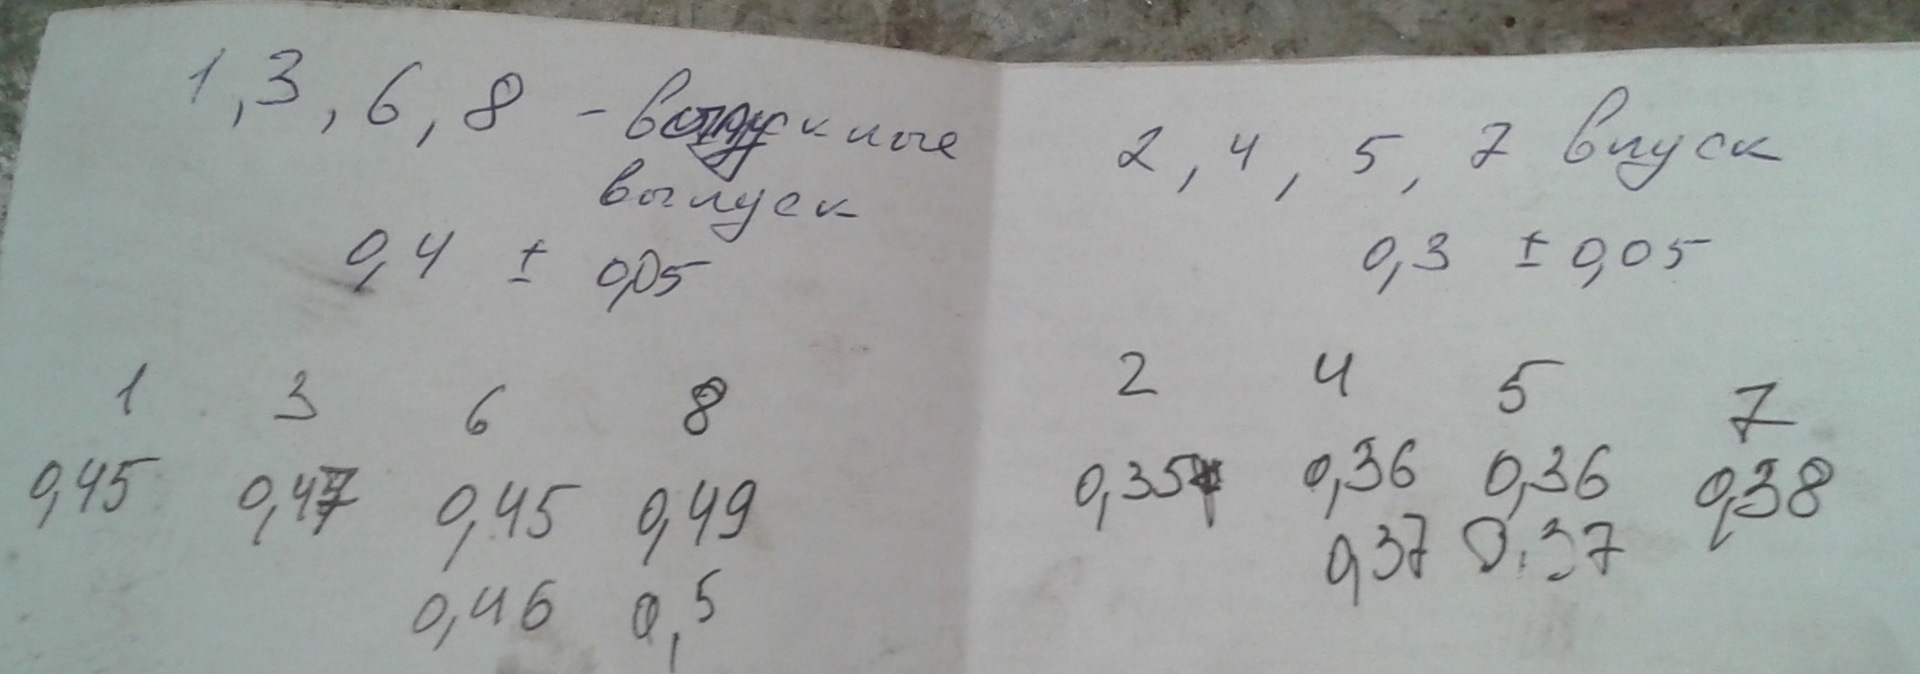 1, 3, 6, 8 - впускные
выпуск
0,4 ± 0,05
1 3 6 8
0,45 0,47 0,45 0,49
0,46 0,5
2, 4, 5, 7 впуск
0,3 ± 0,05
2 4 5 7
0,35 0,36 0,36 0,38
0,37 0,37